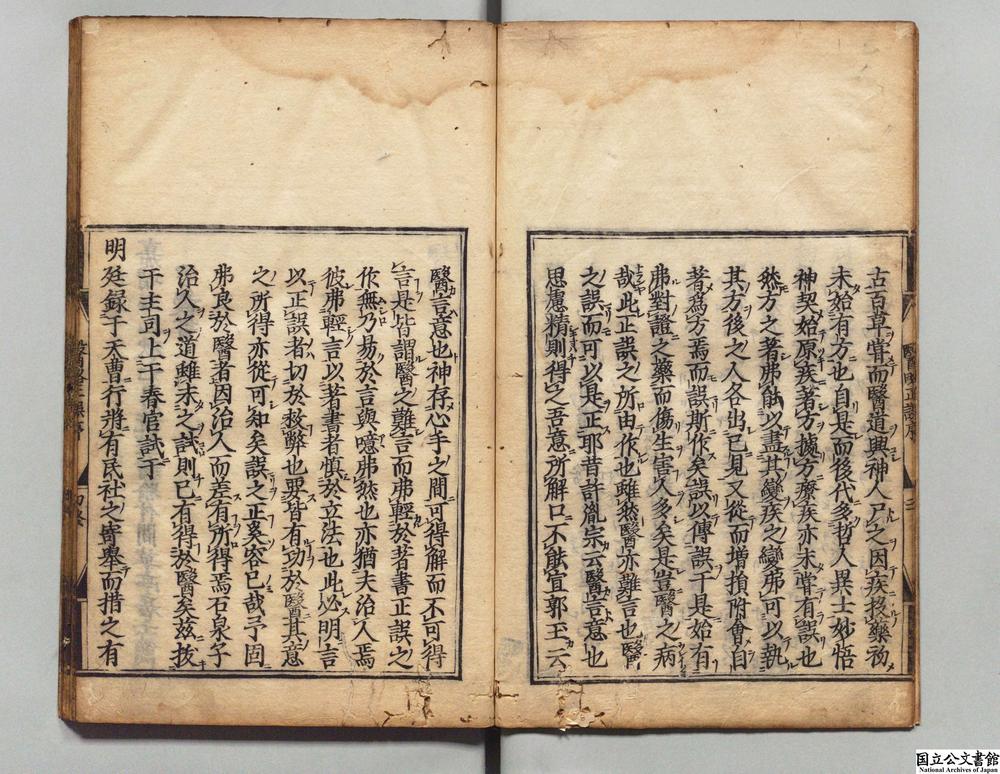 古百草甞而醫道興神人尸之因疾投藥初
未始有方也自是而後代多哲人異士妙悟
神契始原疾著方據方療疾亦未甞有誤也
然方之著弗能以盡其變疾之變弗可以執
其方後之人各出已見又從而增損附會自
著爲方焉而誤斯作矣誤以傳誤于是始有
弗對證之藥而傷生害人多矣是豈醫之病
哉此正誤之所由作也雖然醫亦難言也醫
之誤而可以是正耶昔許胤宗云醫言意也
思慮精則得之吾意所解口不能宣郭玉云
醫言意也神存心手之間可得解而不可得
言是皆謂醫之難言而弗輕於著書正誤之
作無乃易於言與噫弗然也亦猶夫治人焉
彼弗輕言以著書者慎於立法也此必明言
以正誤者切於救弊也要皆有功於醫其意
之所得亦從可知矣誤之正奚容已哉予固
弗良於醫者因治人而差有所得焉石泉子
治人之道雖未之試則已有得於醫矣茲拔
于主司上于春官試于
明廷録于天曹行將有民社之寄舉而措之有
國立公文書館
National Archives of Japan